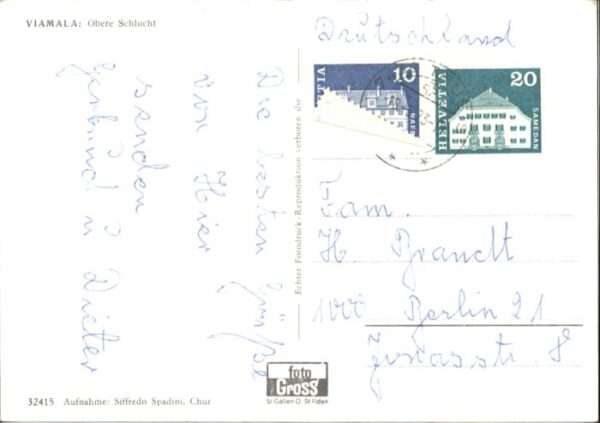 VIAMALA: Obere Schlucht
Die besten Grüße
von Hier
senden
Gertrud u Dieter
Echter Fotodruck-Reproduktion verboten
Deutschland
HELVETIA 10
HELVETIA 20 SAMEDAN
Fam.
H Brandt
1000 Berlin 21
8
foto
Gross
St Gallen O St Fiden
32415 Aufnahme: Siffredo Spadini, Chur